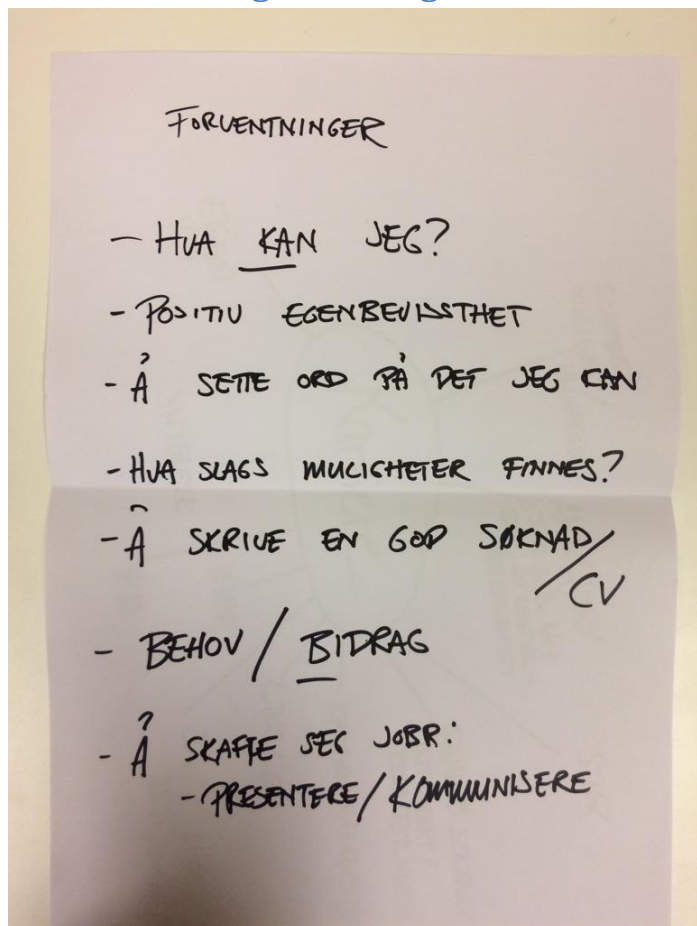 FORVENTNINGER
- HVA KAN JEG?
- POSITIV EGENBEVISSTHET
- Å SETTE ORD PÅ DET JEG KAN
- HVA SLAGS MULIGHETER FINNES?
- Å SKRIVE EN GOD SØKNAD/
/CV
- BEHOV / BIDRAG
- Å SKAFFE SEG JOBB:
- PRESENTERE/KOMMUNISERE